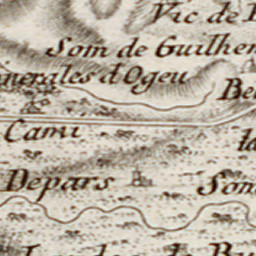 Vic de
Som de Guilhem
nerales d'Ogeu
Be
Cami
la
Depars
Som
de